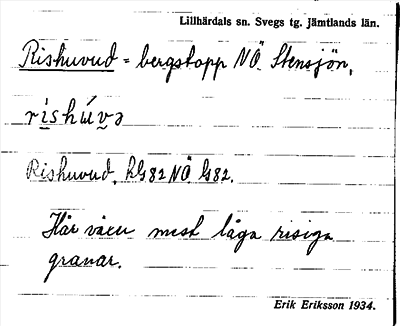 Lillhärdals sn. Svegs tg. jämtlands län.
Rishuvud = bergstopp NÖ. Stensjön,
ríshúvə
Rishuvud, NÖ
Här växer mest låga risiga
granar.
Erik Eriksson 1934.